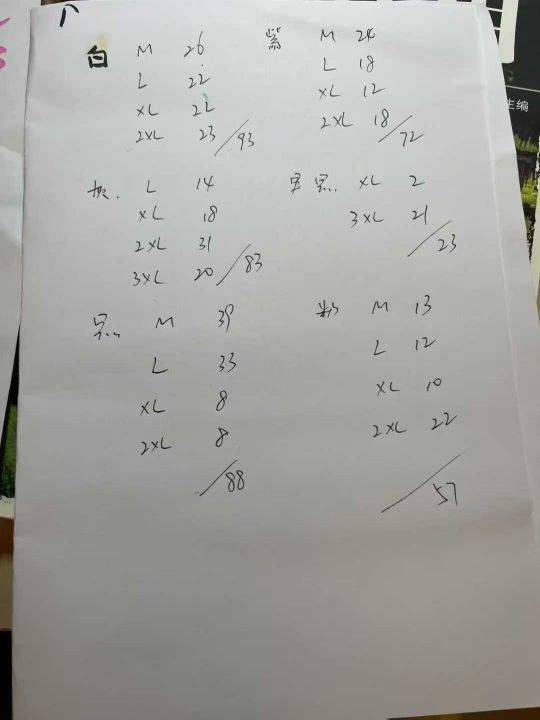 白 M 26
L 22
XL 22
2XL 23 /93
紫 M 24
L 18
XL 12
2XL 18 /72
L 14
XL 18
2XL 31
3XL 20 /83
XL 2
3XL 21
/23
黑 M 39
L 33
XL 8
2XL 8
/88
粉 M 13
L 12
XL 10
2XL 22
/57
主编